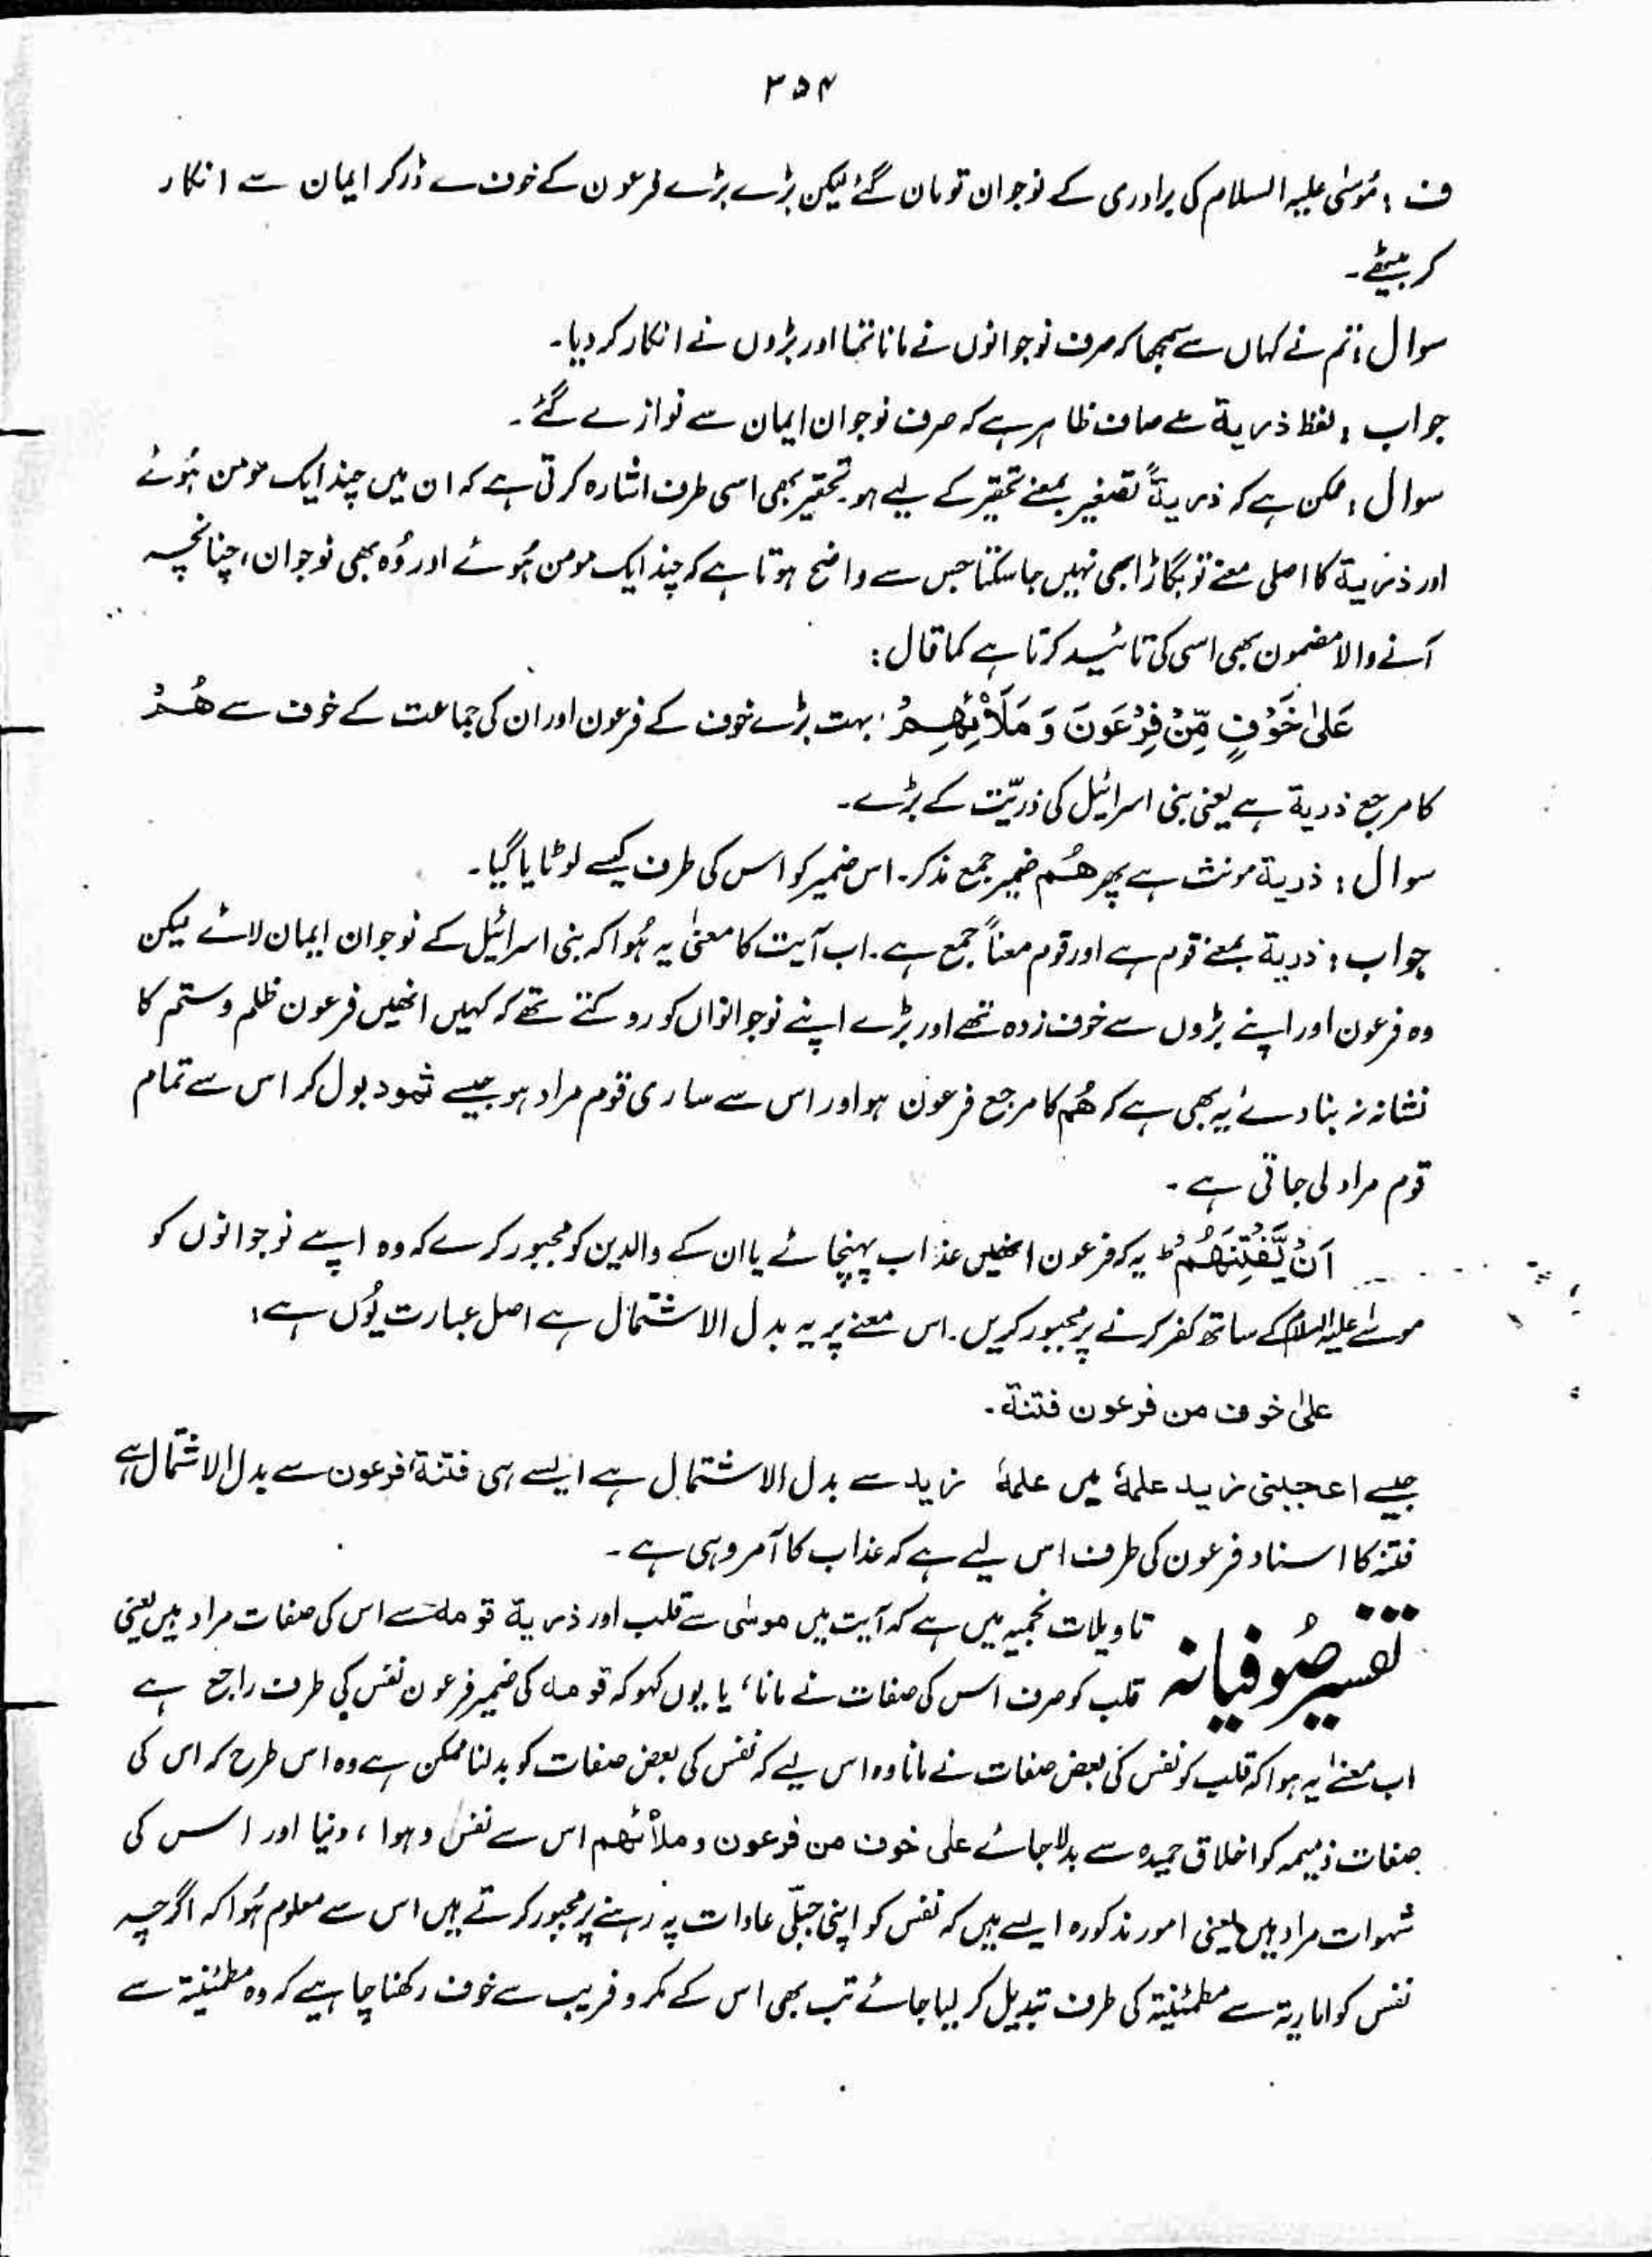 ۲۵۴
ف : مُوسٰی علیہ السلام کی برادری کے نوجوان تو مان گئے لیکن بڑے بڑے فرعون کے خوف سے ڈر کر ایمان سے انکار
کر بیٹھے۔
سوال : تم نے کہاں سے سمجھا کہ صرف نوجوانوں نے مانا تھا اور بڑوں نے انکار کر دیا۔
جواب : لفظ ذریة سے صاف ظاہر ہے کہ صرف نوجوان ایمان سے نوازے گئے۔
سوال : ممکن ہے کہ ذریةً تصغیر بمعنے تحقیر کے لیے ہو۔ تحقیر بھی اسی طرف اشارہ کرتی ہے کہ ان میں چند ایک مومن ہُوئے
اور ذریة کا اصلی معنے تو بگاڑا بھی نہیں جا سکتا جس سے واضح ہوتا ہے کہ چند ایک مومن ہُوئے اور وُہ بھی نوجوان، چنانچہ
آنے والا مضمون بھی اسی کی تائید کرتا ہے کما قال :
عَلٰی خَوْفٍ مِّنْ فِرْعَوْنَ وَ مَلَاْئِهِمْ ؛ بہت بڑے خوف کے فرعون اور ان کی جماعت کے خوف سے هُمْ
کا مرجع ذریة ہے یعنی بنی اسرائیل کی ذریّت کے بڑے۔
سوال : ذریة مونث ہے پھر هُم ضمیر جمع مذکر۔ اس ضمیر کو اس کی طرف کیسے لوٹایا گیا۔
جواب : ذریة بمعنے قوم ہے اور قوم معناً جمع ہے۔ اب آیت کا معنیٰ یہ ہُوا کہ بنی اسرائیل کے نوجوان ایمان لائے لیکن
وہ فرعون اور اپنے بڑوں سے خوف زدہ تھے اور بڑے اپنے نوجوانوں کو روکتے تھے کہ کہیں انھیں فرعون ظلم و ستم کا
نشانہ نہ بنا دے یہ بھی ہے کہ هُم کا مرجع فرعون ہو اور اس سے ساری قوم مراد ہو جیسے ثمود بول کر اس سے تمام
قوم مراد لی جاتی ہے۔
اَنْ يَّفْتِنَهُمْ ط یہ کہ فرعون انھیں عذاب پہنچائے یا ان کے والدین کو مجبور کرے کہ وہ اپنے نوجوانوں کو
موسٰے علیہ السلام کے ساتھ کفر کرنے پر مجبور کریں۔ اس معنے پر یہ بدل الاشتمال ہے اصل عبارت یُوں ہے :
علیٰ خوف من فرعون فتنة۔
جیسے اعجبنی زید علمهٗ میں علمهٗ زید سے بدل الاشتمال ہے ایسے ہی فتنة فرعون سے بدل الاشتمال ہے
فتنہ کا اسناد فرعون کی طرف اس لیے ہے کہ عذاب کا آمر وہی ہے۔
تفسیر صُوفیانہ تاویلات نجمیہ میں ہے کہ آیت میں موسٰی سے قلب اور ذریة قومه سے اس کی صفات مراد ہیں یعنی
قلب کو صرف اس کی صفات نے مانا، یا یوں کہو کہ قومه کی ضمیر فرعون نفس کی طرف راجع ہے
اب معنے یہ ہوا کہ قلب کو نفس کی بعض صفات نے مانا وہ اس لیے کہ نفس کی بعض صفات کو بدلنا ممکن ہے وہ اس طرح کہ اس کی
صفات ذمیمہ کو اخلاق حمیدہ سے بدلا جائے علی خوف من فرعون و ملاْئهم اس سے نفس و ہوا، دنیا اور اس کی
شہوات مراد ہیں یعنی امور مذکورہ ایسے ہیں کہ نفس کو اپنی جبلّی عادات پہ رہنے پر مجبور کرتے ہیں اس سے معلوم ہُوا کہ اگرچہ
نفس کو اماریة سے مطمئنیة کی طرف تبدیل کر لیا جائے تب بھی اس کے مکر و فریب سے خوف رکھنا چاہیے کہ وہ مطمئنیة سے